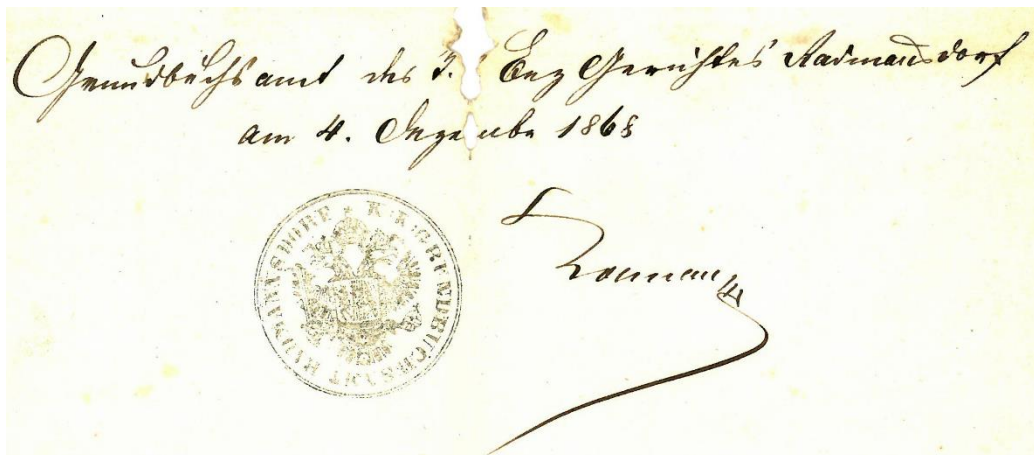 Grundbuchsamt des k. k. Bez Gerichtes Radmannsdorf
am 4. Dezembe 1868
K. K. GRUNDBUCHSAMT RADMANNSDORF